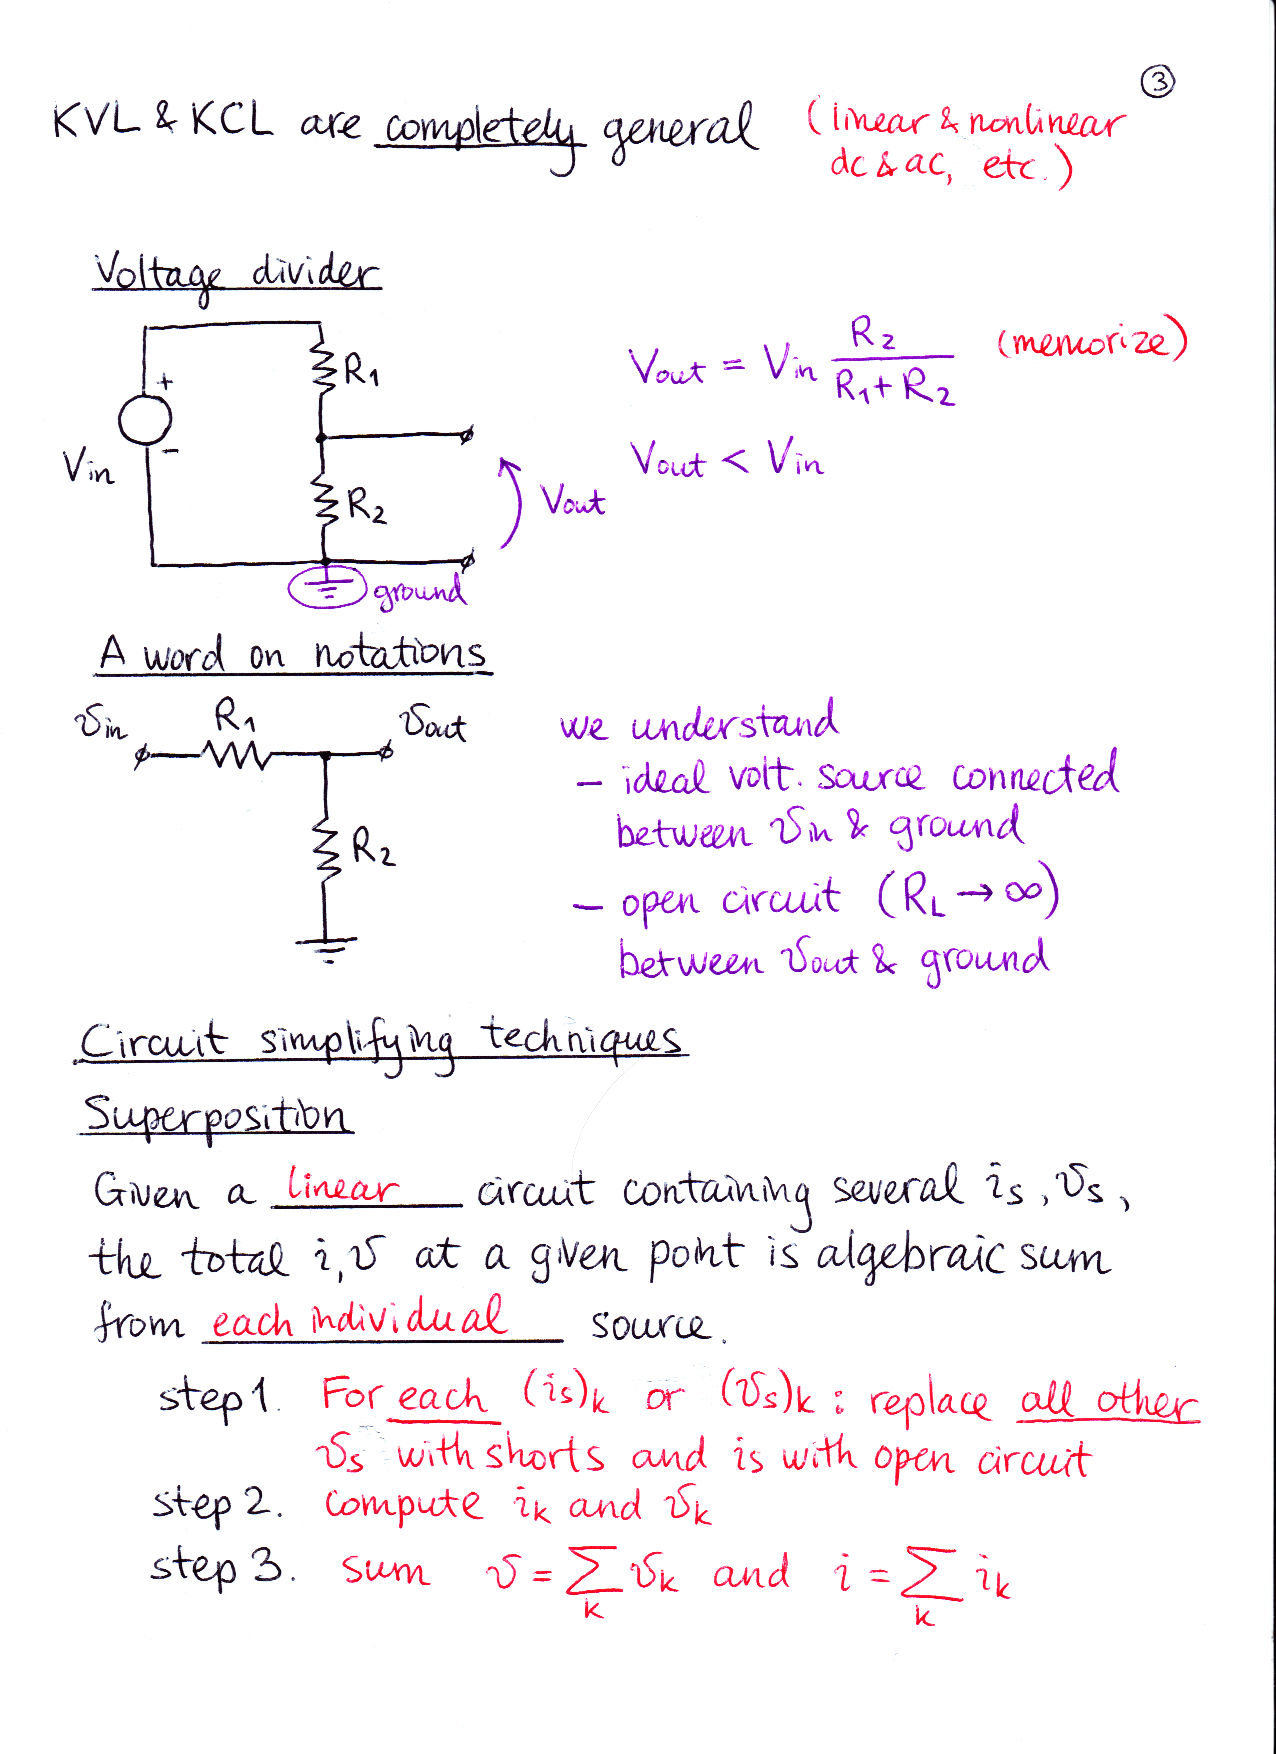 ③
KVL & KCL are completely general (linear & nonlinear
dc & ac, etc.)
Voltage divider
+
-
Vin
R1
R2
Vout
ground
Vout = Vin R2 / (R1 + R2) (memorize)
Vout < Vin
A word on notations
vin R1 vout
R2
we understand
- ideal volt. source connected
between vin & ground
- open circuit (RL → ∞)
between vout & ground
Circuit simplifying techniques
Superposition
Given a linear circuit containing several is, vs,
the total i, v at a given point is algebraic sum
from each individual source.
step 1. For each (is)k or (vs)k : replace all other
vs with shorts and is with open circuit
step 2. compute ik and vk
step 3. sum v = Σk vk and i = Σk ik